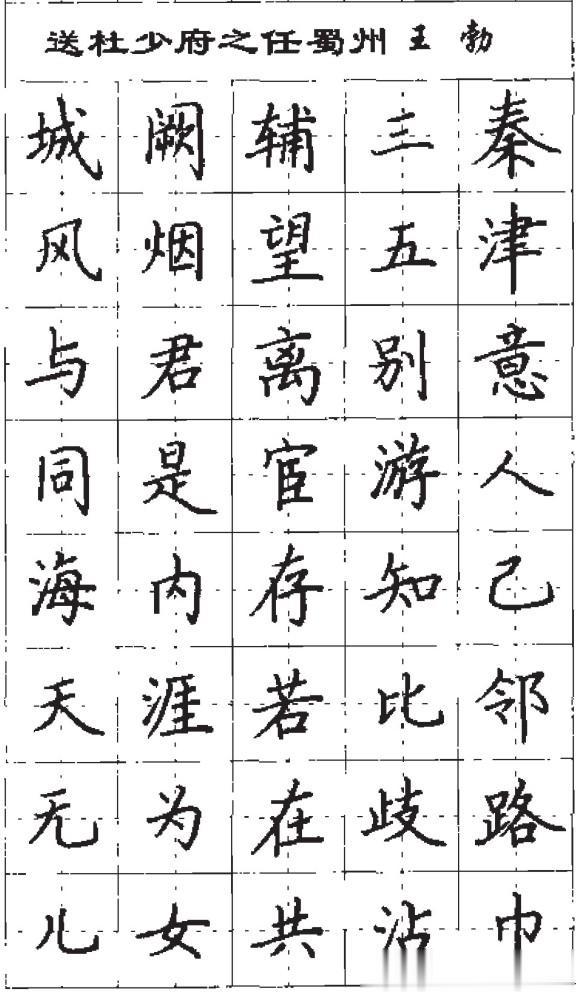 送杜少府之任蜀州 王勃
城阙辅三秦
风烟望五津
与君离别意
同是宦游人
海内存知己
天涯若比邻
无为在歧路
儿女共沾巾